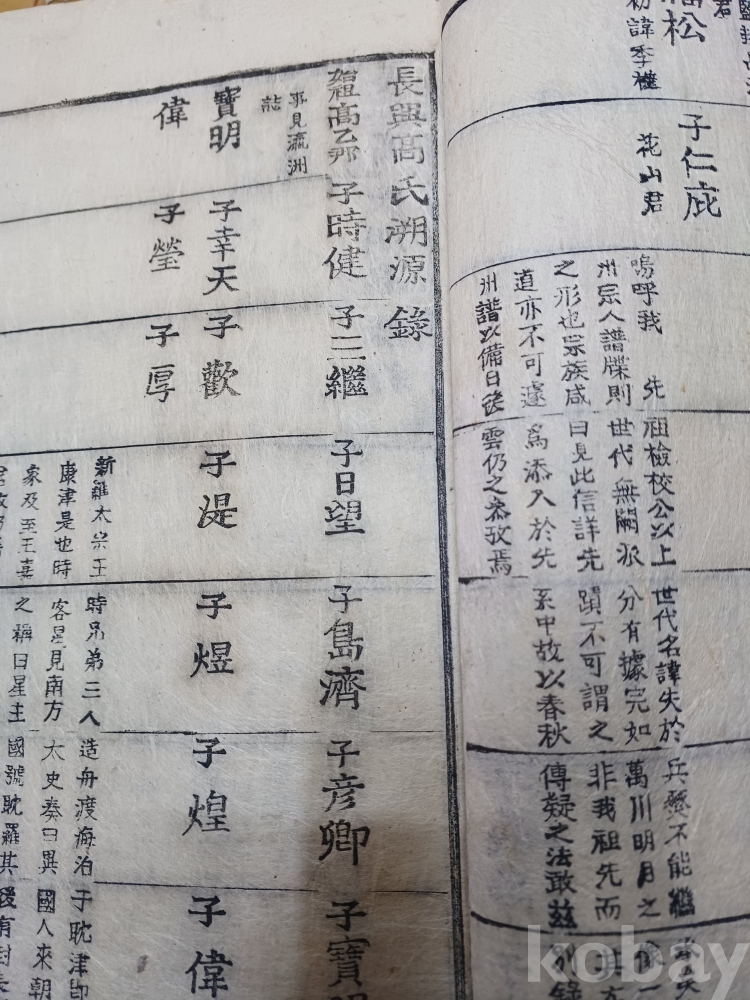 松
初諱季權
子仁庇
花山君
嗚呼我 先祖檢校公以上世代名諱失於兵燹不能繼
州宗人譜牒則世代無闕派分有據完如萬川明月之
之形也宗族咸曰見此信詳先蹟不可謂之非我祖先而
道亦不可遽爲添入於先系中故以春秋傳疑之法敢玆別錄
州譜以備日後雲仍之叅攷焉
長興高氏溯源錄
始祖高乙那 子時健 子三繼 子日望 子島濟 子彦卿 子寶明
事見瀛洲
誌
寶明 子幸天 子歡 子湜 子煜 子煌 子偉
偉 子瑩 子厚
新羅太宗王時兄弟三人造舟渡海泊于耽津即
康津是也時客星見南方太史奏曰異國人來朝
家及至王喜之稱曰星主國號耽羅其後有封
kobay